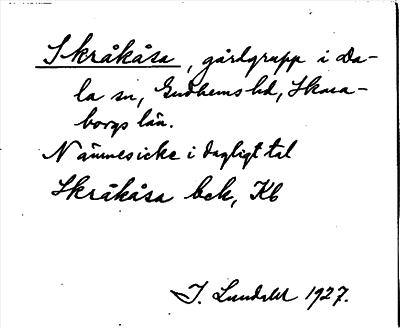 Skråkåsa, gårdgrupp i Da-
la sn, Gudhems hd, Skara-
borgs län.
Nämnes icke i dagligt tal
Skråkåsa bck, Kb
I. Lundahl 1927.